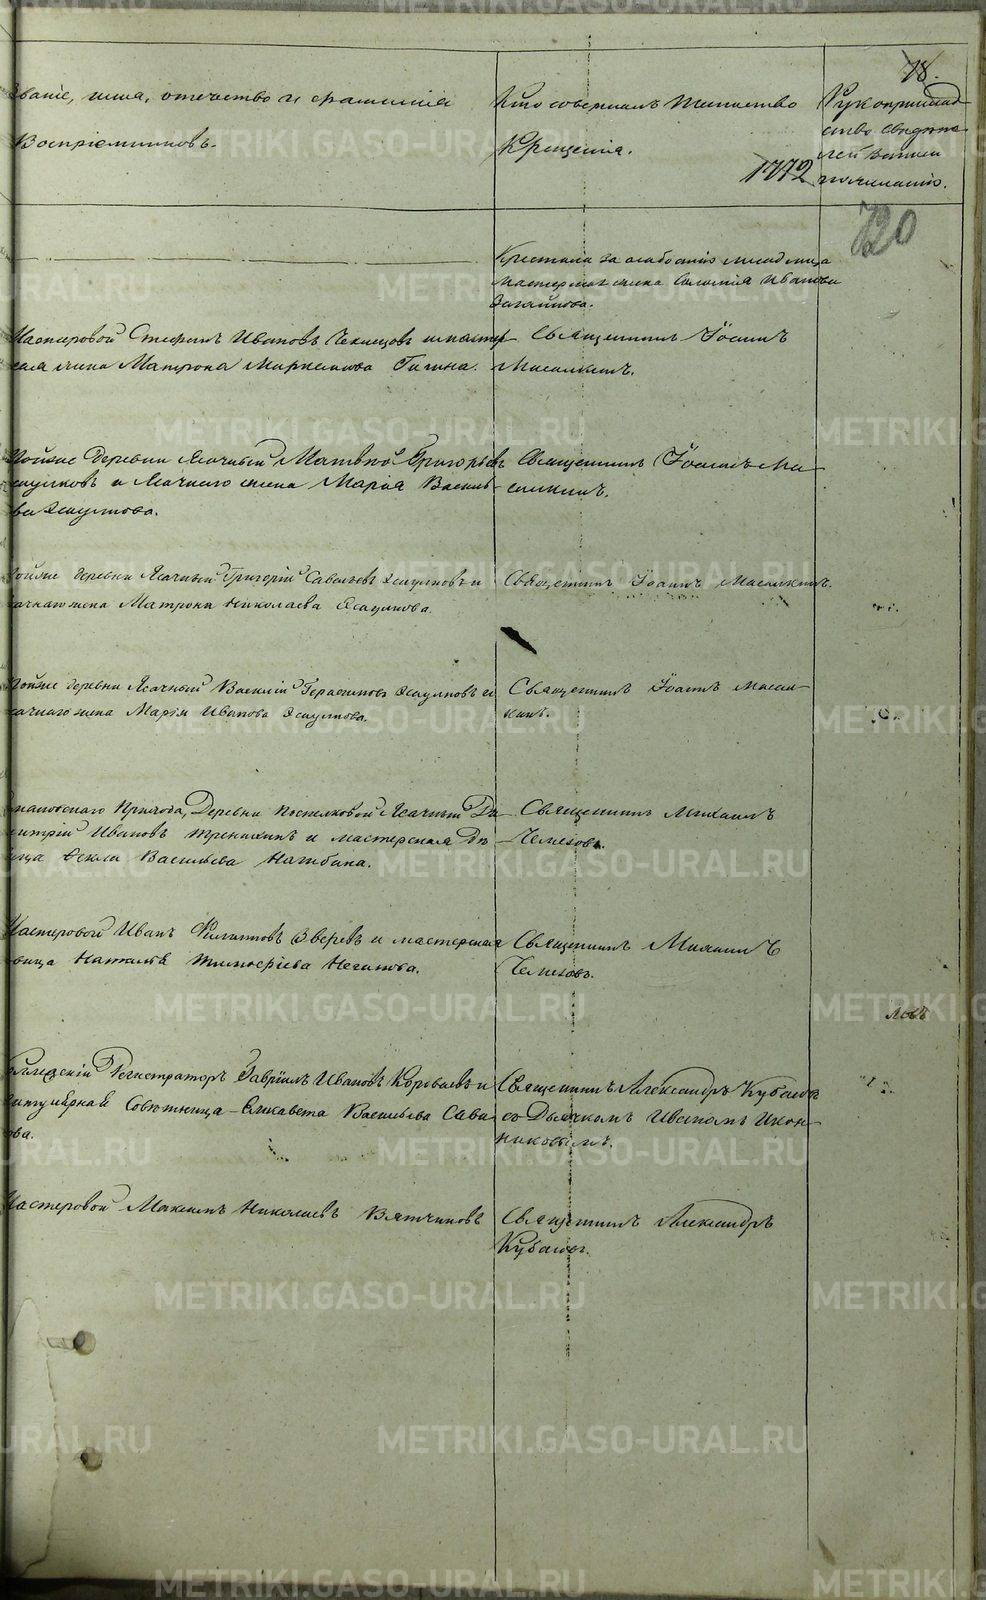 18.
Званіе, имя, отечество и фамилія
Воспріемниковъ.
Кто совершалъ таинство
Крещенія.
Рукоприклад
ство свидѣте
лей записи
по желанію.
1772
720
Крестила за слабостію младенца
мастерская жена Соломія Иванова
Мастеровой Стефанъ Ивановъ
жена Матрона
Священникъ Іоаннъ
Масалкинъ.
Тойже деревни Ясачный Матвей Григорьевъ
Есаулковъ и Ясачнаго жена Марія Василь
ева Есаулкова.
Священникъ Іоаннъ Ма-
салкинъ.
Тойже деревни Ясачный Григорій Савельевъ Есаулковъ и
сачнаго жена Матрона Николаева Есаулкова.
Священникъ Іоаннъ Масалкинъ.
Тойже деревни Ясачный Василій Герасимовъ Есаулковъ и
сачнаго жена Марія Иванова Есаулкова.
Священникъ Іоаннъ Масал-
кинъ.
Прихода, Деревни Ясачный Ди
митрій Ивановъ и мастерская Дѣ
вица Ѳекла Васильева Нагибина.
Священникъ Михаилъ
Челеховъ.
Мастеровой Иванъ Филипповъ Звѣревъ и мастерская
вица Наталья Тимоѳеева
Священникъ Михаилъ
Челеховъ.
ловъ
Коллежскій Регистраторъ Гавріилъ Ивановъ Короваевъ и
титулярная Совѣтница Елисавета Васильева Сави
ова.
Священникъ Александръ Кубасовъ
съ Дьячкомъ Иваномъ Икон-
никовымъ.
Мастеровой Максимъ Николаевъ Вятчиновъ
Священникъ Александръ
Кубасовъ.
METRIKI.GASO-URAL.RU